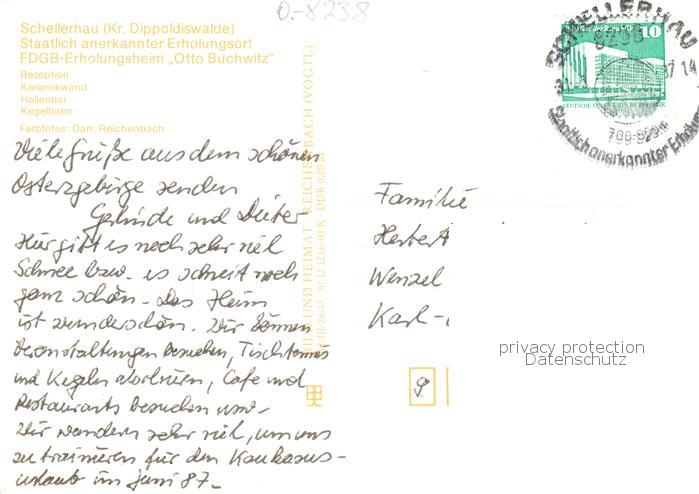 O.-8238
Schellerhau (Kr. Dippoldiswalde)
Staatlich anerkannter Erholungsort
FDGB-Erholungsheim „Otto Buchwitz“
Rezeption
Keramikwand
Hallenbar
Kegelbahn
Farbfotos: Darr, Reichenbach
Viele Grüße aus dem schönen
Osterzgebirge senden
Gerlinde und Dieter
Hier gibt es noch sehr viel
Schnee bzw. es schneit noch
ganz schön. Das Heim
ist wunderschön. Wir können
Veranstaltungen besuchen, Tischtennis
und Kegeln absolvieren, Cafe und
Restaurants besuchen usw.
Wir wandern sehr viel, um uns
zu trainieren für den Kaukasus-
urlaub im Juni 87.
BILD UND HEIMAT REICHENBACH (VOGTL)
DDR 0,20 M
SCHELLERHAU
8238
Staatlich anerkannter
700-800 m
10
DEUTSCHE DEMOKRATISCHE REPUBLIK
Familie
Herbert
Wenzel
Karl-
9
privacy protection
Datenschutz